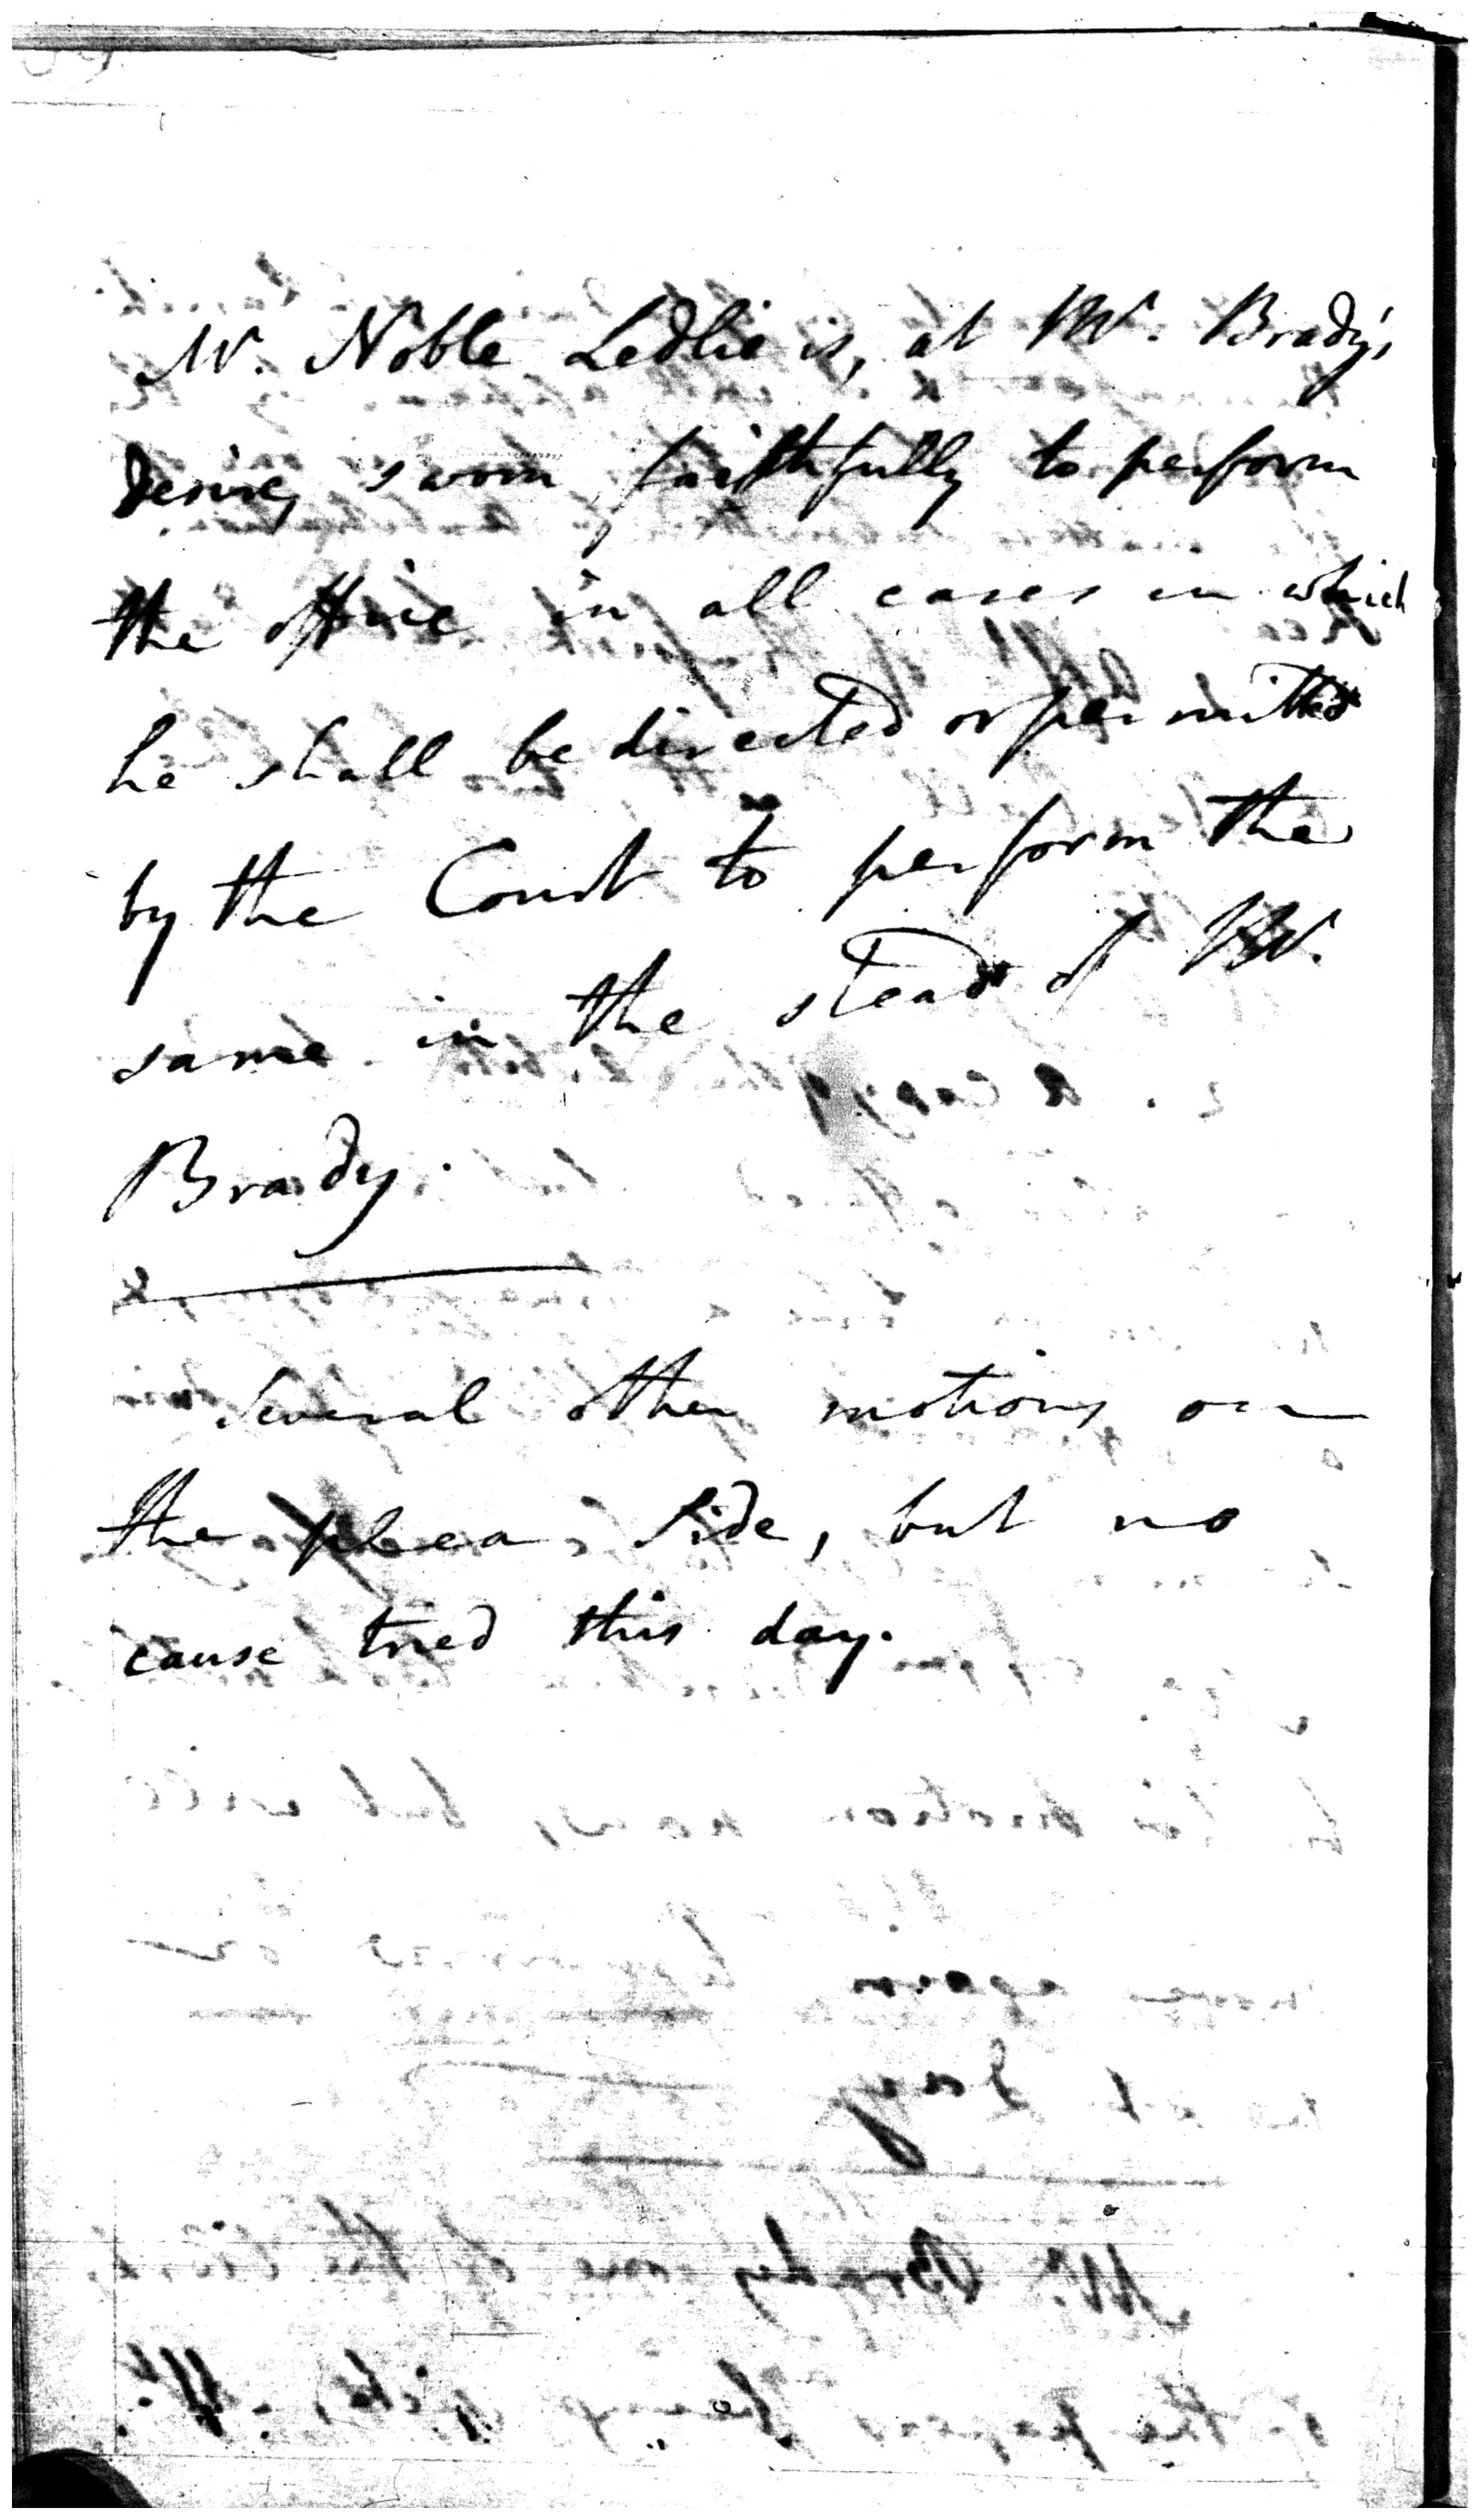 Mr. Noble Ledlie is, at Mr. Brady's
desire, sworn faithfully to perform
the office in all cases in which
he shall be directed or permitted
by the Court to perform the
same in the stead of Mr.
Brady.
Several other motions on
the plea side, but no
cause tried this day.